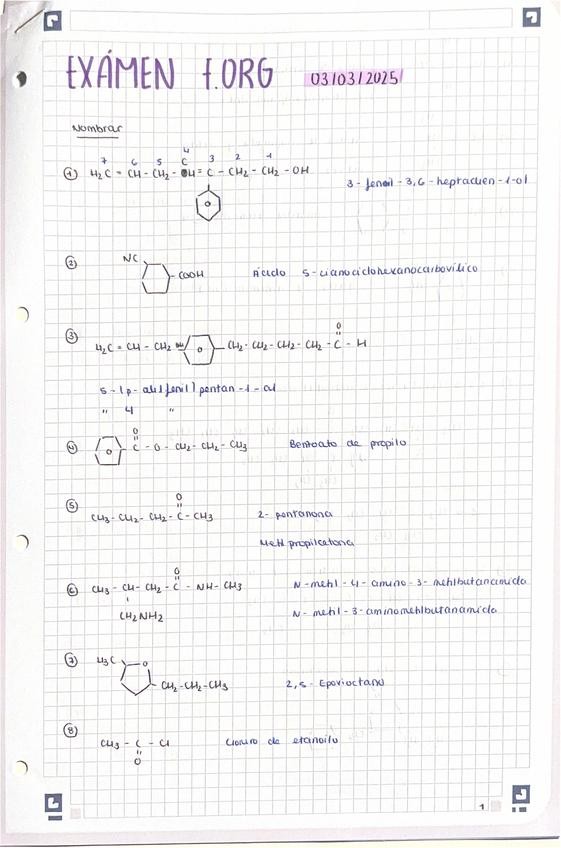 EXÁMEN F.ORG 03/03/2025
Nombrar
7 6 5 4 3 2 1
① H₂C = CH - CH₂ - CH = C - CH₂ - CH₂ - OH
3-fenil-3,6-heptadien-1-ol
② NC COOH Ácido 5-cianociclohexanocarboxílico
③ H₂C = CH - CH₂ CH₂-CH₂-CH₂-CH₂-C-H
O
5-(p-alilfenil)pentan-1-al
" 4 "
④ C - O - CH₂ - CH₂ - CH₃ Benzoato de propilo
O
⑤ CH₃-CH₂-CH₂-C-CH₃ 2-pentanona
O
Metilpropilcetona
⑥ CH₃-CH-CH₂-C-NH-CH₃ N-metil-4-amino-3-metilbutanamida
O
CH₂NH₂ N-metil-3-aminometilbutanamida
⑦ H₃C O CH₂-CH₂-CH₃ 2,5-Epoxioctano
⑧ CH₃-C-Cl Cloruro de etanoilo
O
1